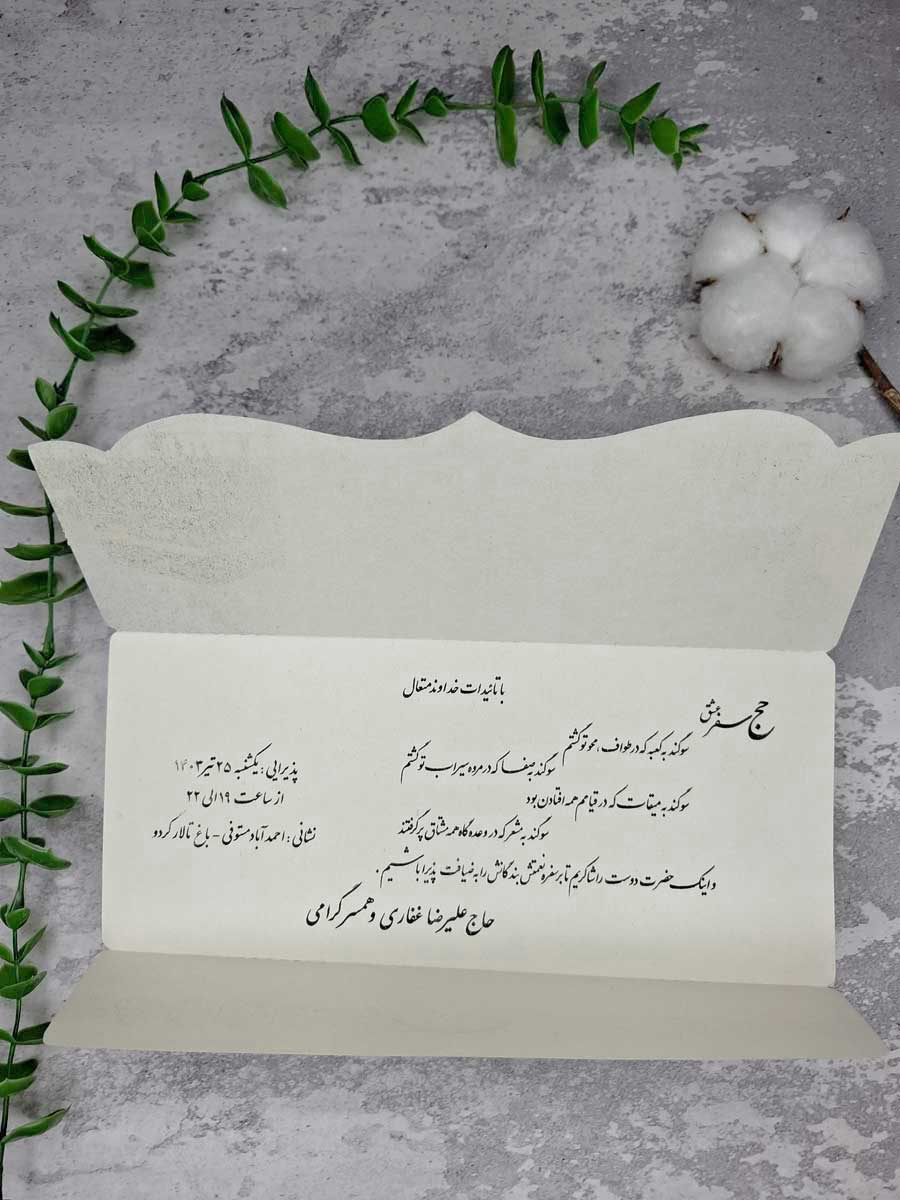 با تائیدات خداوند متعال
حج سفر عشق
سوگند به کعبه که در طواف، محو تو گشتم
سوگند به صفا که در مروه سیراب تو گشتم
سوگند به میقات که در قیامم همه افتادن بود
سوگند به مشعر که در وعده گاه همه مشتاق پر گرفتند
و اینک حضرت دوست را شاکریم تا بر سفره نعمتش بندگانش را به ضیافت پذیرا باشیم.
حاج علیرضا غفاری و همسر گرامی
پذیرایی: یکشنبه ۲۵ تیر ۱۴۰۳
از ساعت ۱۹ الی ۲۲
نشانی: احمدآباد مستوفی - باغ تالار کردو